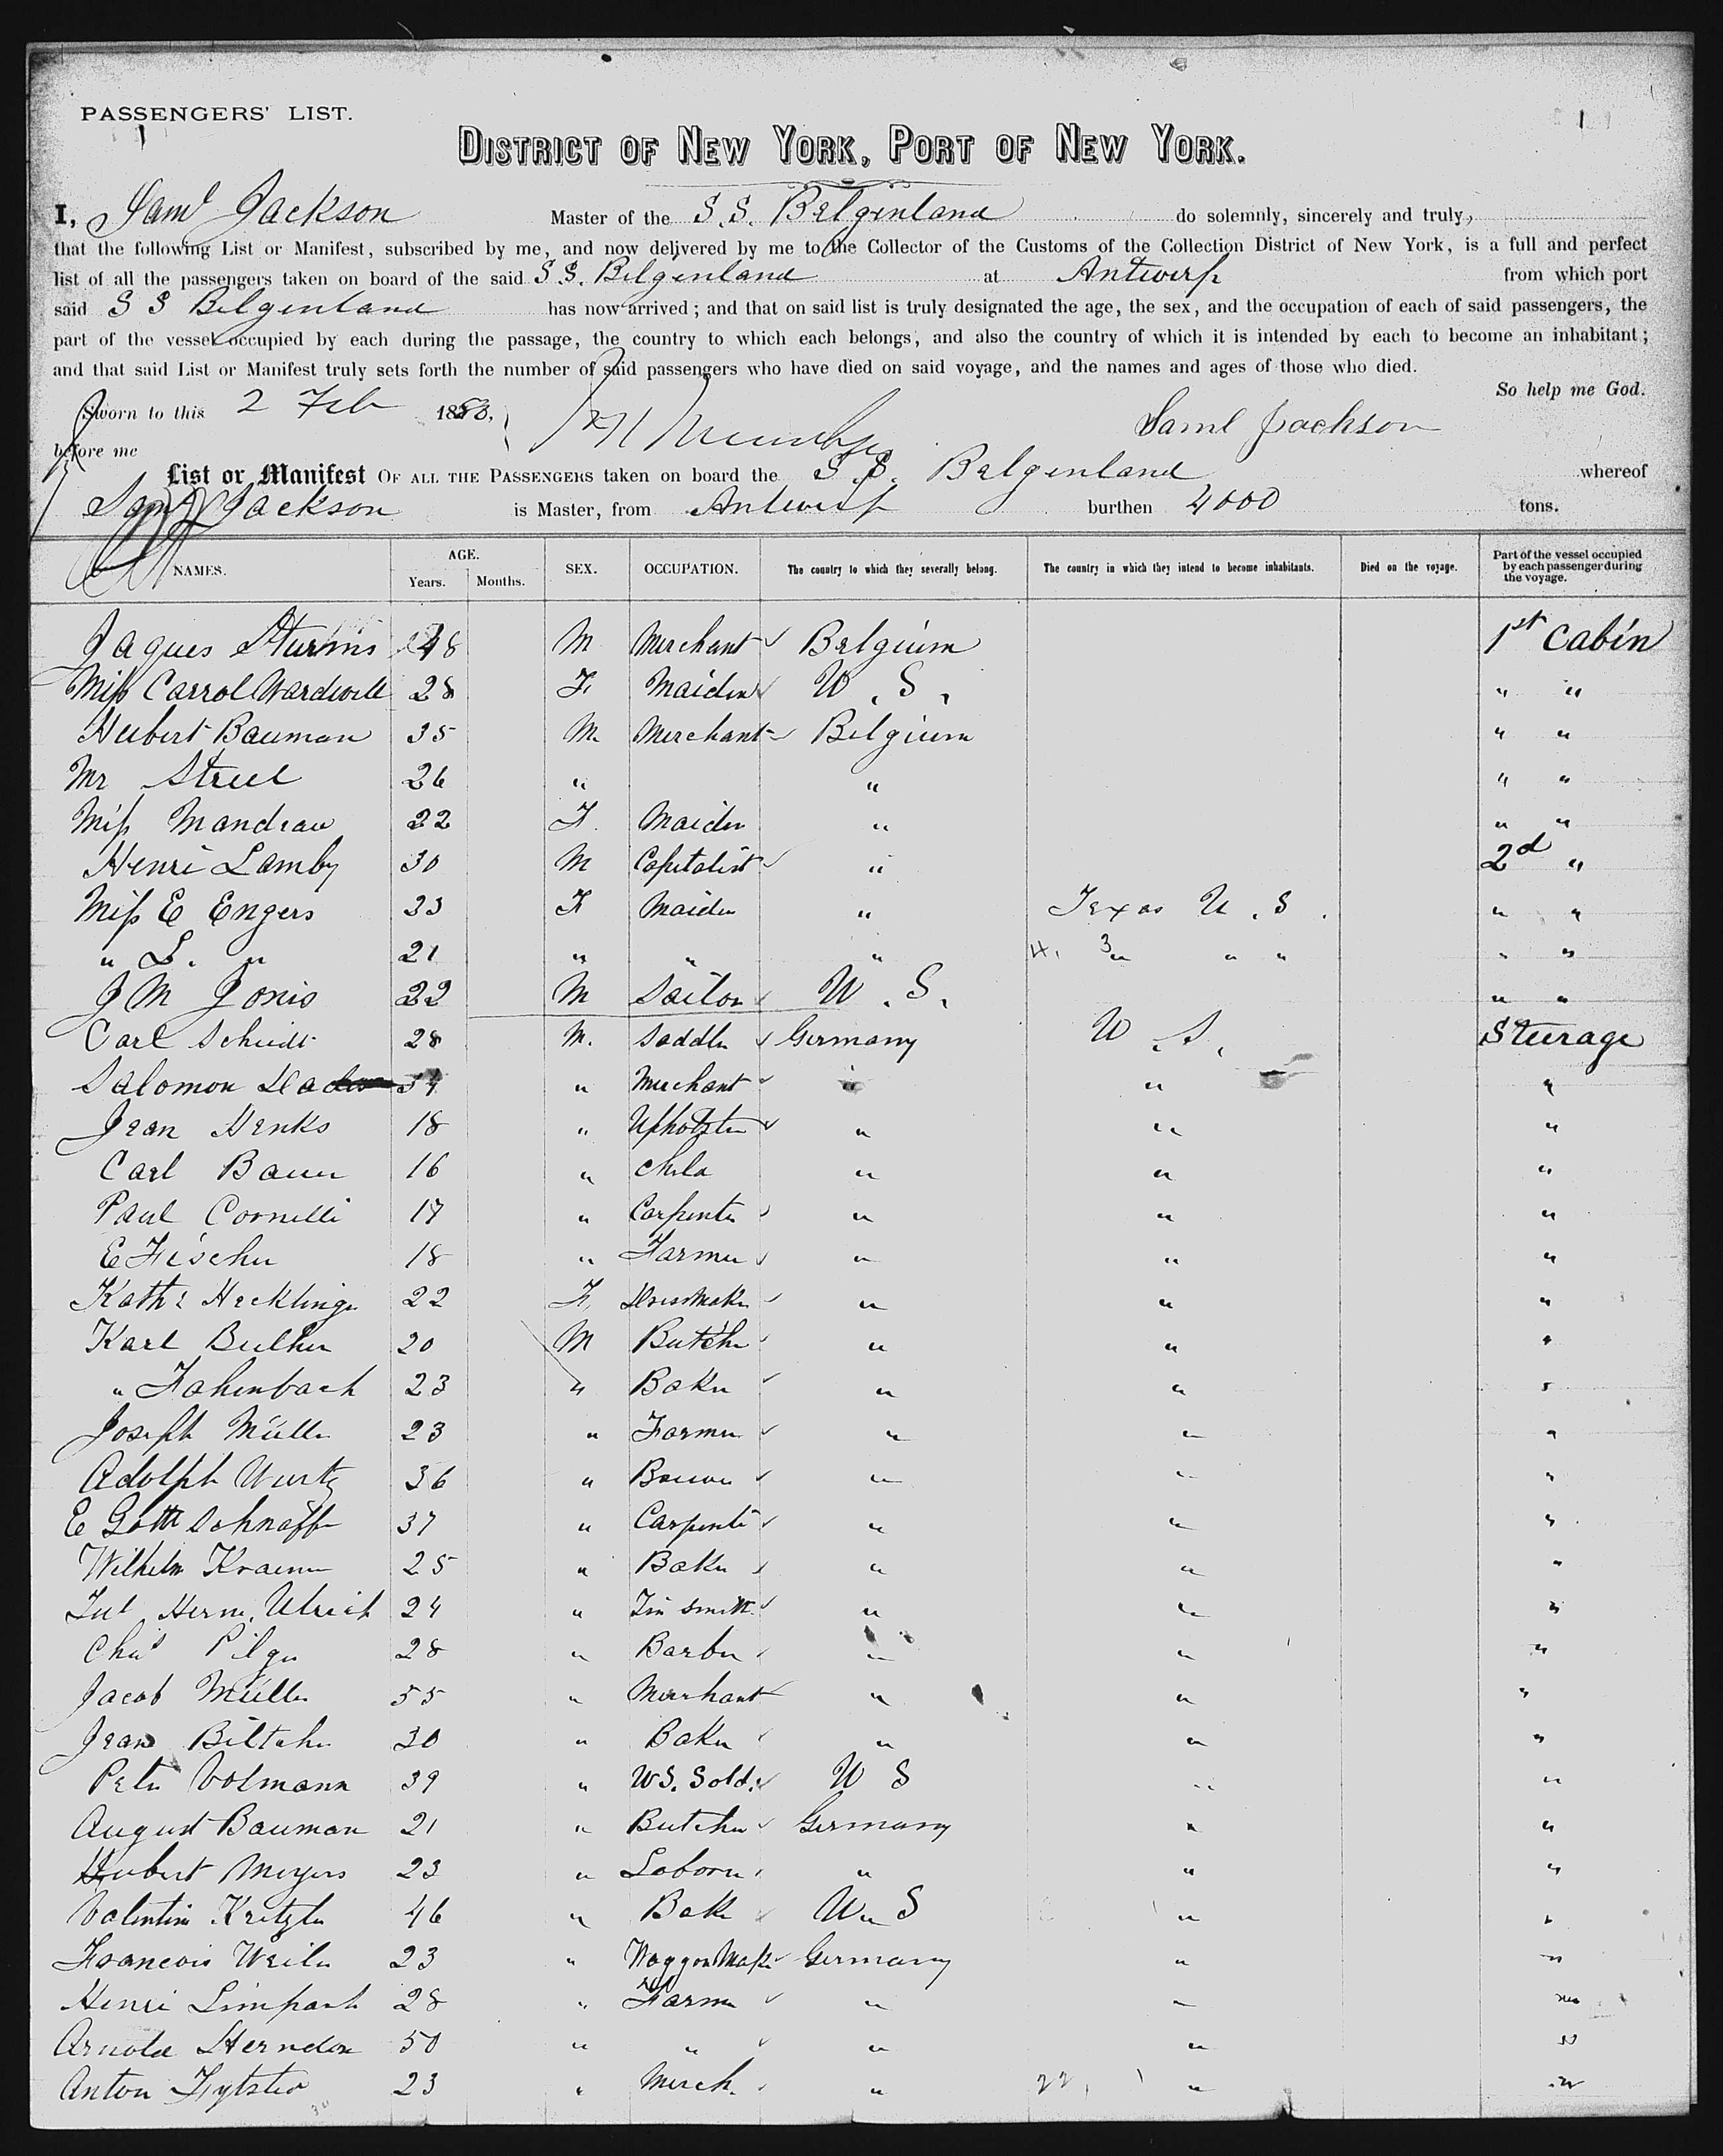 PASSENGERS' LIST.
1
1
DISTRICT OF NEW YORK, PORT OF NEW YORK.
I, Saml Jackson Master of the S.S. Belgenland do solemnly, sincerely and truly,
that the following List or Manifest, subscribed by me, and now delivered by me to the Collector of the Customs of the Collection District of New York, is a full and perfect
list of all the passengers taken on board of the said S.S. Belgenland at Antwerp from which port
said S S Belgenland has now arrived; and that on said list is truly designated the age, the sex, and the occupation of each of said passengers, the
part of the vessel occupied by each during the passage, the country to which each belongs, and also the country of which it is intended by each to become an inhabitant;
and that said List or Manifest truly sets forth the number of said passengers who have died on said voyage, and the names and ages of those who died.
So help me God.
Sworn to this 2 Feb 1883, Saml Jackson
before me
List or Manifest OF ALL THE PASSENGERS taken on board the S.S. Belgenland whereof
Saml Jackson is Master, from Antwerp burthen 4000 tons.
NAMES. AGE. Years. Months. SEX. OCCUPATION. The country to which they severally belong. The country in which they intend to become inhabitants. Died on the voyage. Part of the vessel occupied by each passenger during the voyage.
Jaques 48 M Merchant Belgium 1st Cabin
Miss Carrol Wardwell 28 F. Maiden U.S. " "
Hubert Bauman 35 M Merchant Belgium " "
Mr Streel 26 " " " "
Miss Mandrau 22 F. Maiden " " "
Henri Lamby 30 M Capitalist " 2d "
Miss E Engers 23 F Maiden " Texas U.S. " "
" L. " 21 " " " " " " " "
J M Jonis 22 M Sailor U.S. " "
Carl Scheidt 28 M. Saddler Germany U.S. Steerage
Salomon 34 " Merchant " " "
Jean Henks 18 " Upholster " " "
Carl Bauer 16 " Child " " "
Paul Cornelli 17 " Carpenter " " "
E Fischer 18 " Farmer " " "
Kath. Hecklinger 22 F. Dressmaker " " "
Karl Buther 20 M Butcher " " "
" Fahenbach 23 " Baker " " "
Joseph Müller 23 " Farmer " " "
Adolph Wurtz 36 " Brewer " " "
E Gottschnaff 37 " Carpenter " " "
Wilhelm Kraemer 25 " Baker " " "
Jul. Herm. Ulrich 24 " Tin smith " " "
Chas Pilger 28 " Barber " " "
Jacob Müller 55 " Merchant " " "
Jean Biltcher 30 " Baker " " "
Peter Volmann 39 " U.S. Sold. U S " "
August Bauman 21 " Butcher Germany " "
Hubert Meyers 23 " Laborer " " "
Valentin Kretzler 46 " Baker U S " "
Francois Weiler 23 " Waggon Maker Germany " "
Henri Limpach 28 " Farmer " " "
Arnold Herndon 50 " " " " "
Anton 23 " Merch. " 22 " "